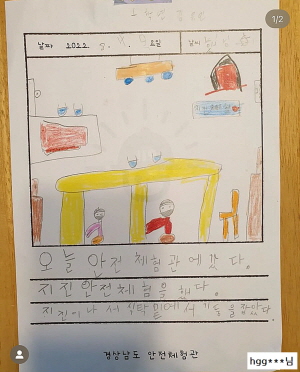 1/2
날짜 2022. 5. 요일 날씨
오늘 안전 체험관에 갔다.
지진 안전체험을 했다.
지진이 나서 식탁 밑에서 기둥을 잡았다.
경상남도 안전체험관
hgg***님